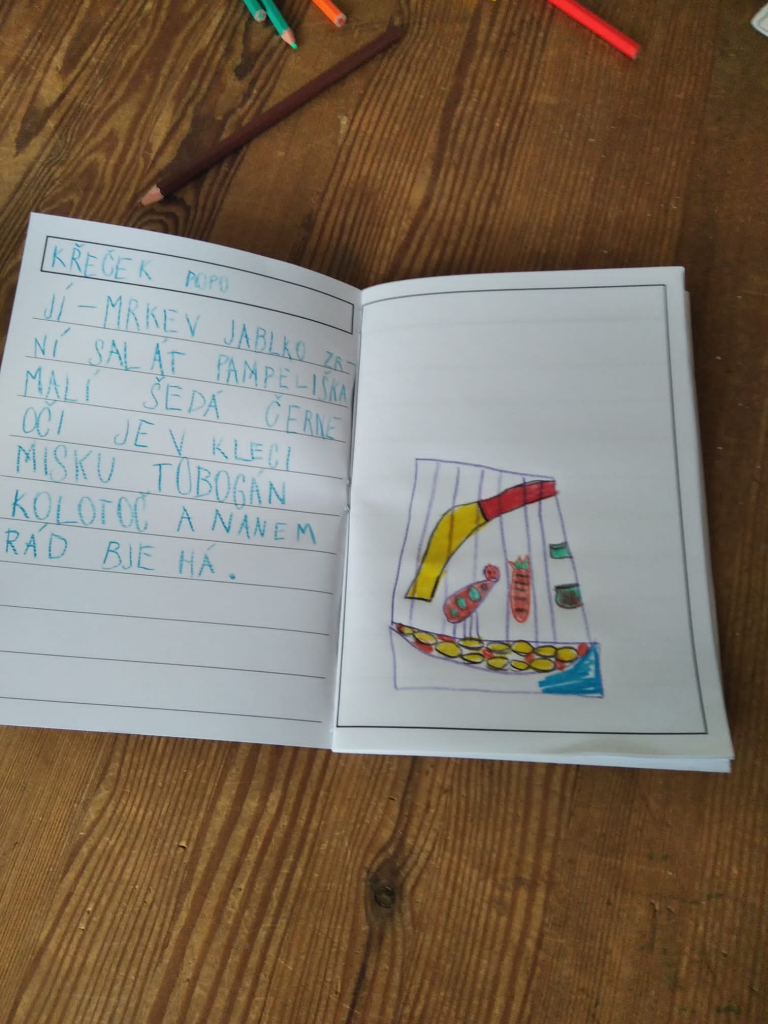 KŘEČEK POPO
JÍ-MRKEV JABLKO ZR-
NÍ SALÁT PAMPELIŠKA
MALÍ ŠEDÁ ČERNÉ
OČI JE V KLECI
MISKU TOBOGÁN
KOLOTOČ A NANEM
RÁD BJE HÁ.